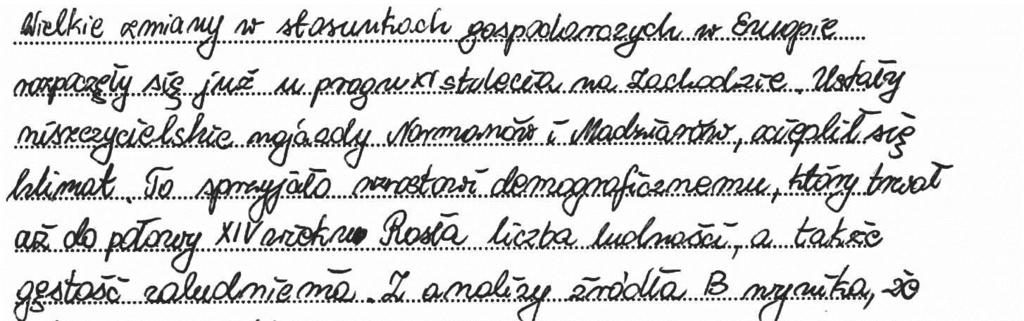 Wielkie zmiany w stosunkach gospodarczych w Europie
rozpoczęły się już u progu XI stulecia na Zachodzie. Ustały
niszczycielskie najazdy Normanów i Madziarów, ocieplił się
klimat. To sprzyjało wzrostowi demograficznemu, który trwał
aż do połowy XIV wieku. Rosła liczba ludności, a także
gęstość zaludnienia. Z analizy źródła B wynika, że